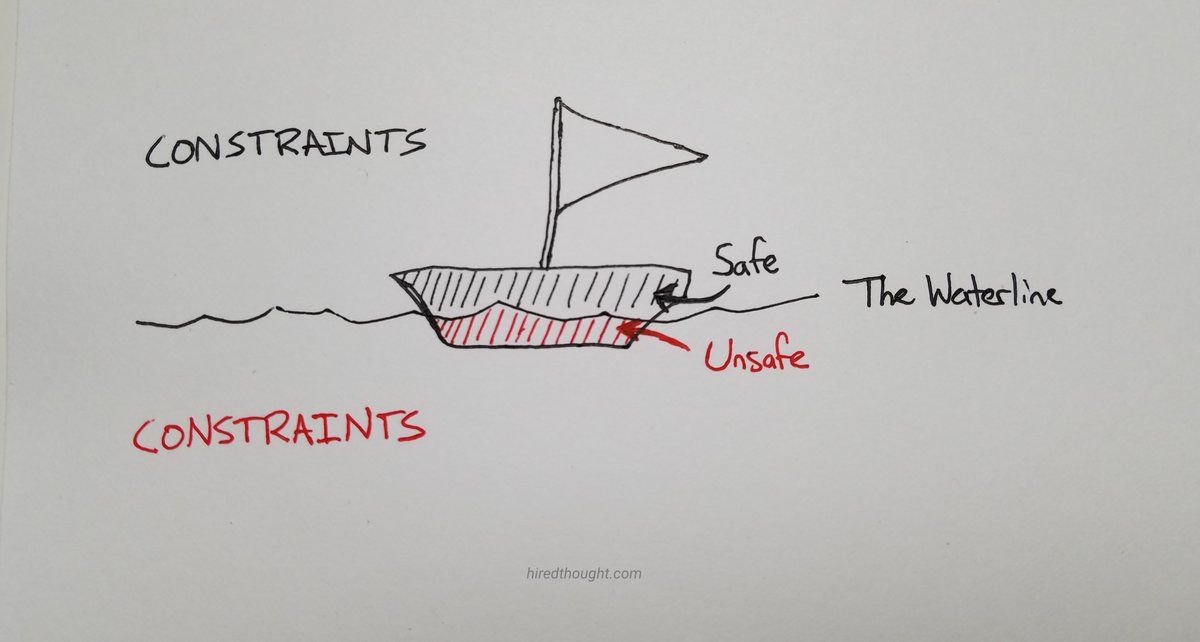 CONSTRAINTS
Safe
The Waterline
Unsafe
CONSTRAINTS
hiredthought.com